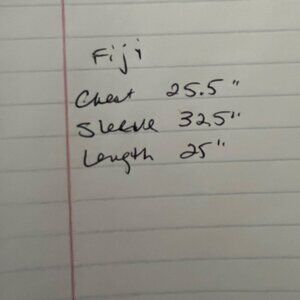 Fiji
Chest 25.5"
Sleeve 32.5"
Length 25"